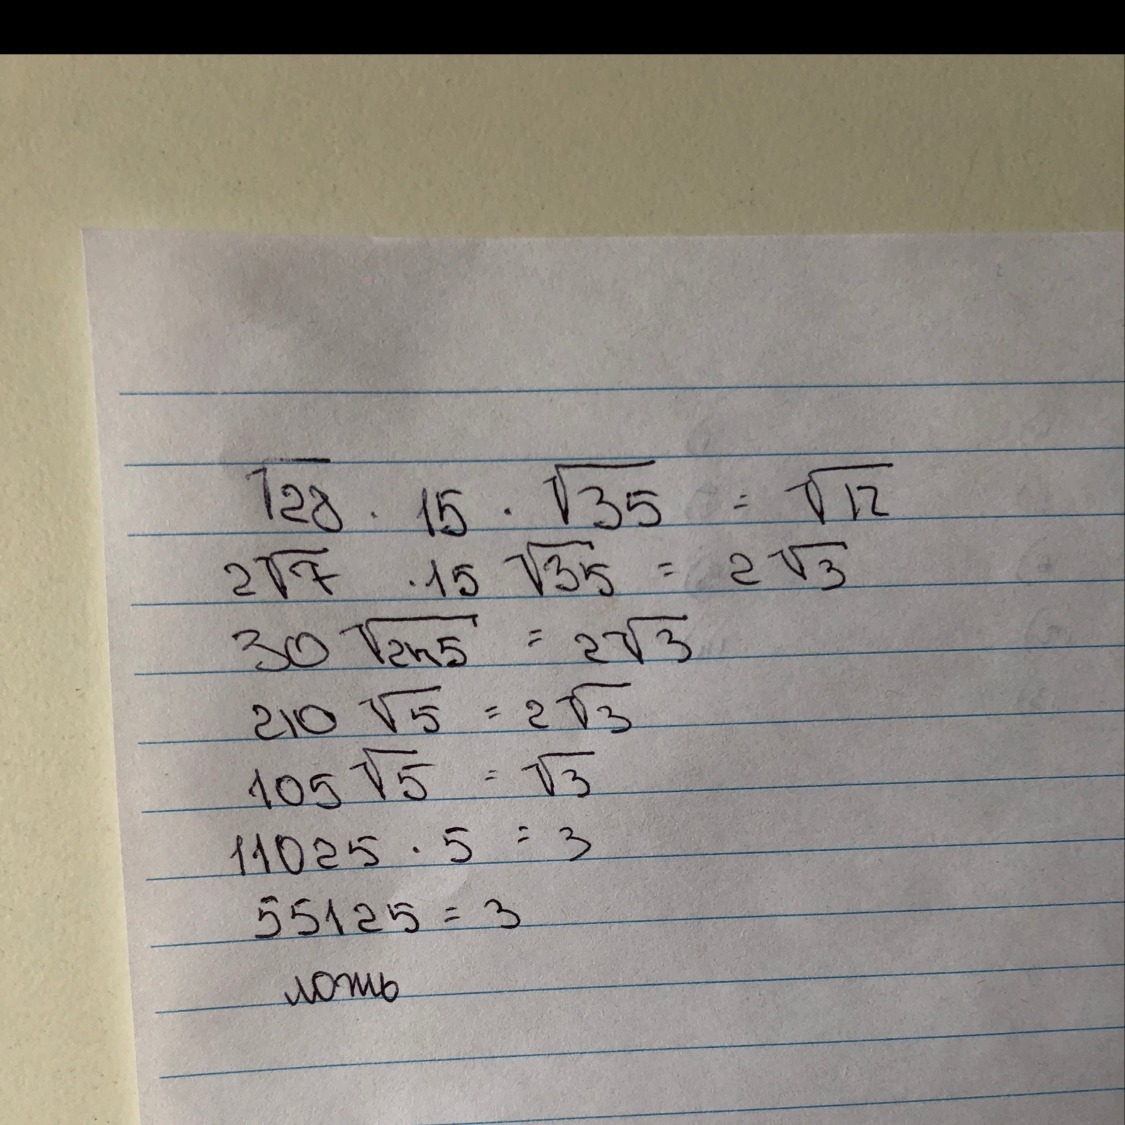 √28 · 15 · √35 = √12
2√7 · 15 √35 = 2√3
30 √245 = 2√3
210 √5 = 2√3
105 √5 = √3
11025 · 5 = 3
55125 = 3
ложь